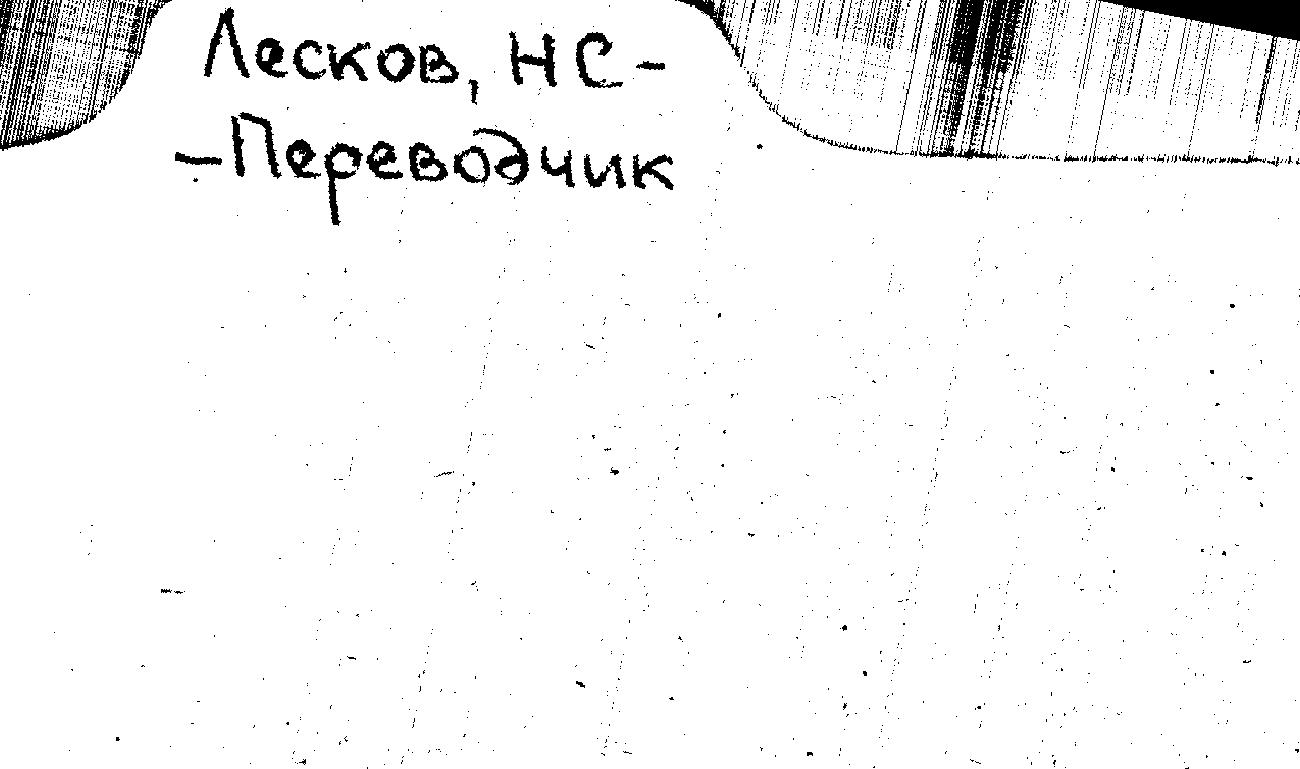 Лесков, НС-
-Переводчик